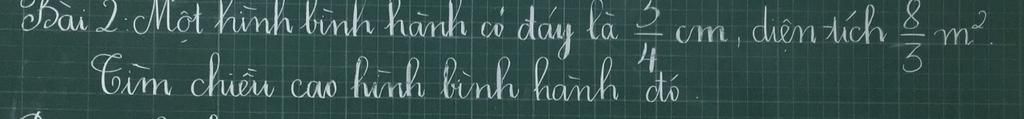 Bài 2: Một hình bình hành có đáy là 3/4 cm, diện tích 8/3 m².
Tìm chiều cao hình bình hành đó.